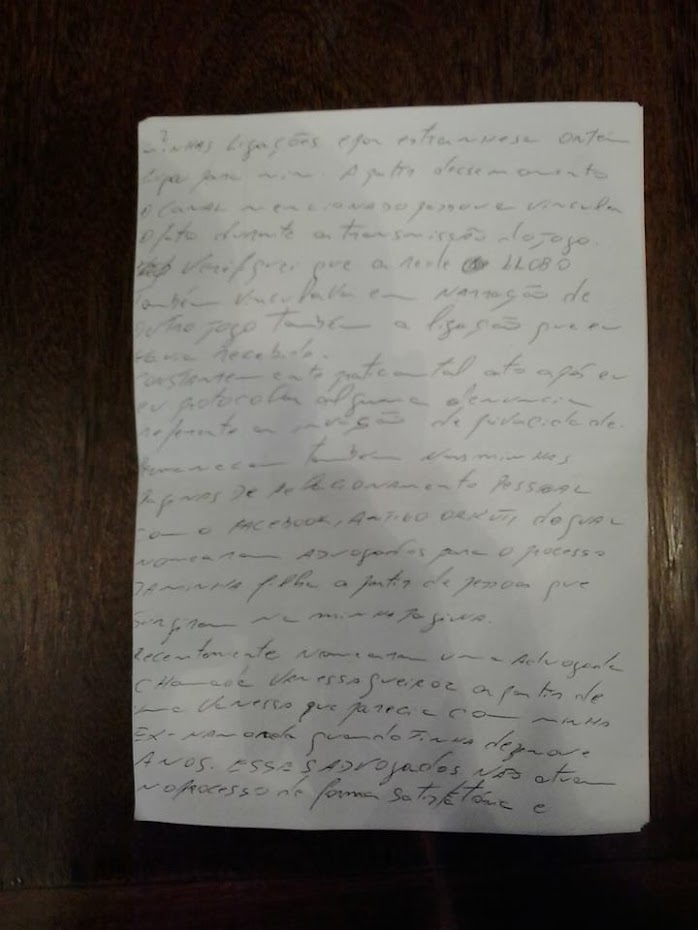 minhas ligações e por estranhesa ontem
ligou para mim. A partir desse momento
o canal mencionado passou a vincular
o fato durante a transmissão do jogo.
Verifiquei que a rede GLOBO
também vinculava em narração de
outro jogo também a ligação que eu
havia recebido.
Constantemente praticam tal ato após eu
eu protocolar alguma denuncia
referente a invasão de privacidade.
também nas minhas
páginas de relacionamento pessoal
com o FACEBOOK, ANTIGO ORKUT, do qual
nomearam advogados para o processo
DA MINHA filha a partir de pessoas que
surgiram na minha pagina.
Recentemente nomearam uma Advogada
CHamada Vanessa Queiroz a partir de
uma Vanessa que parecia com minha
EX-NAMORADA quando TINHA dezenove
ANOS. ESSES ADVOGADOS NÃO atuam
No processo de forma satisfatória e